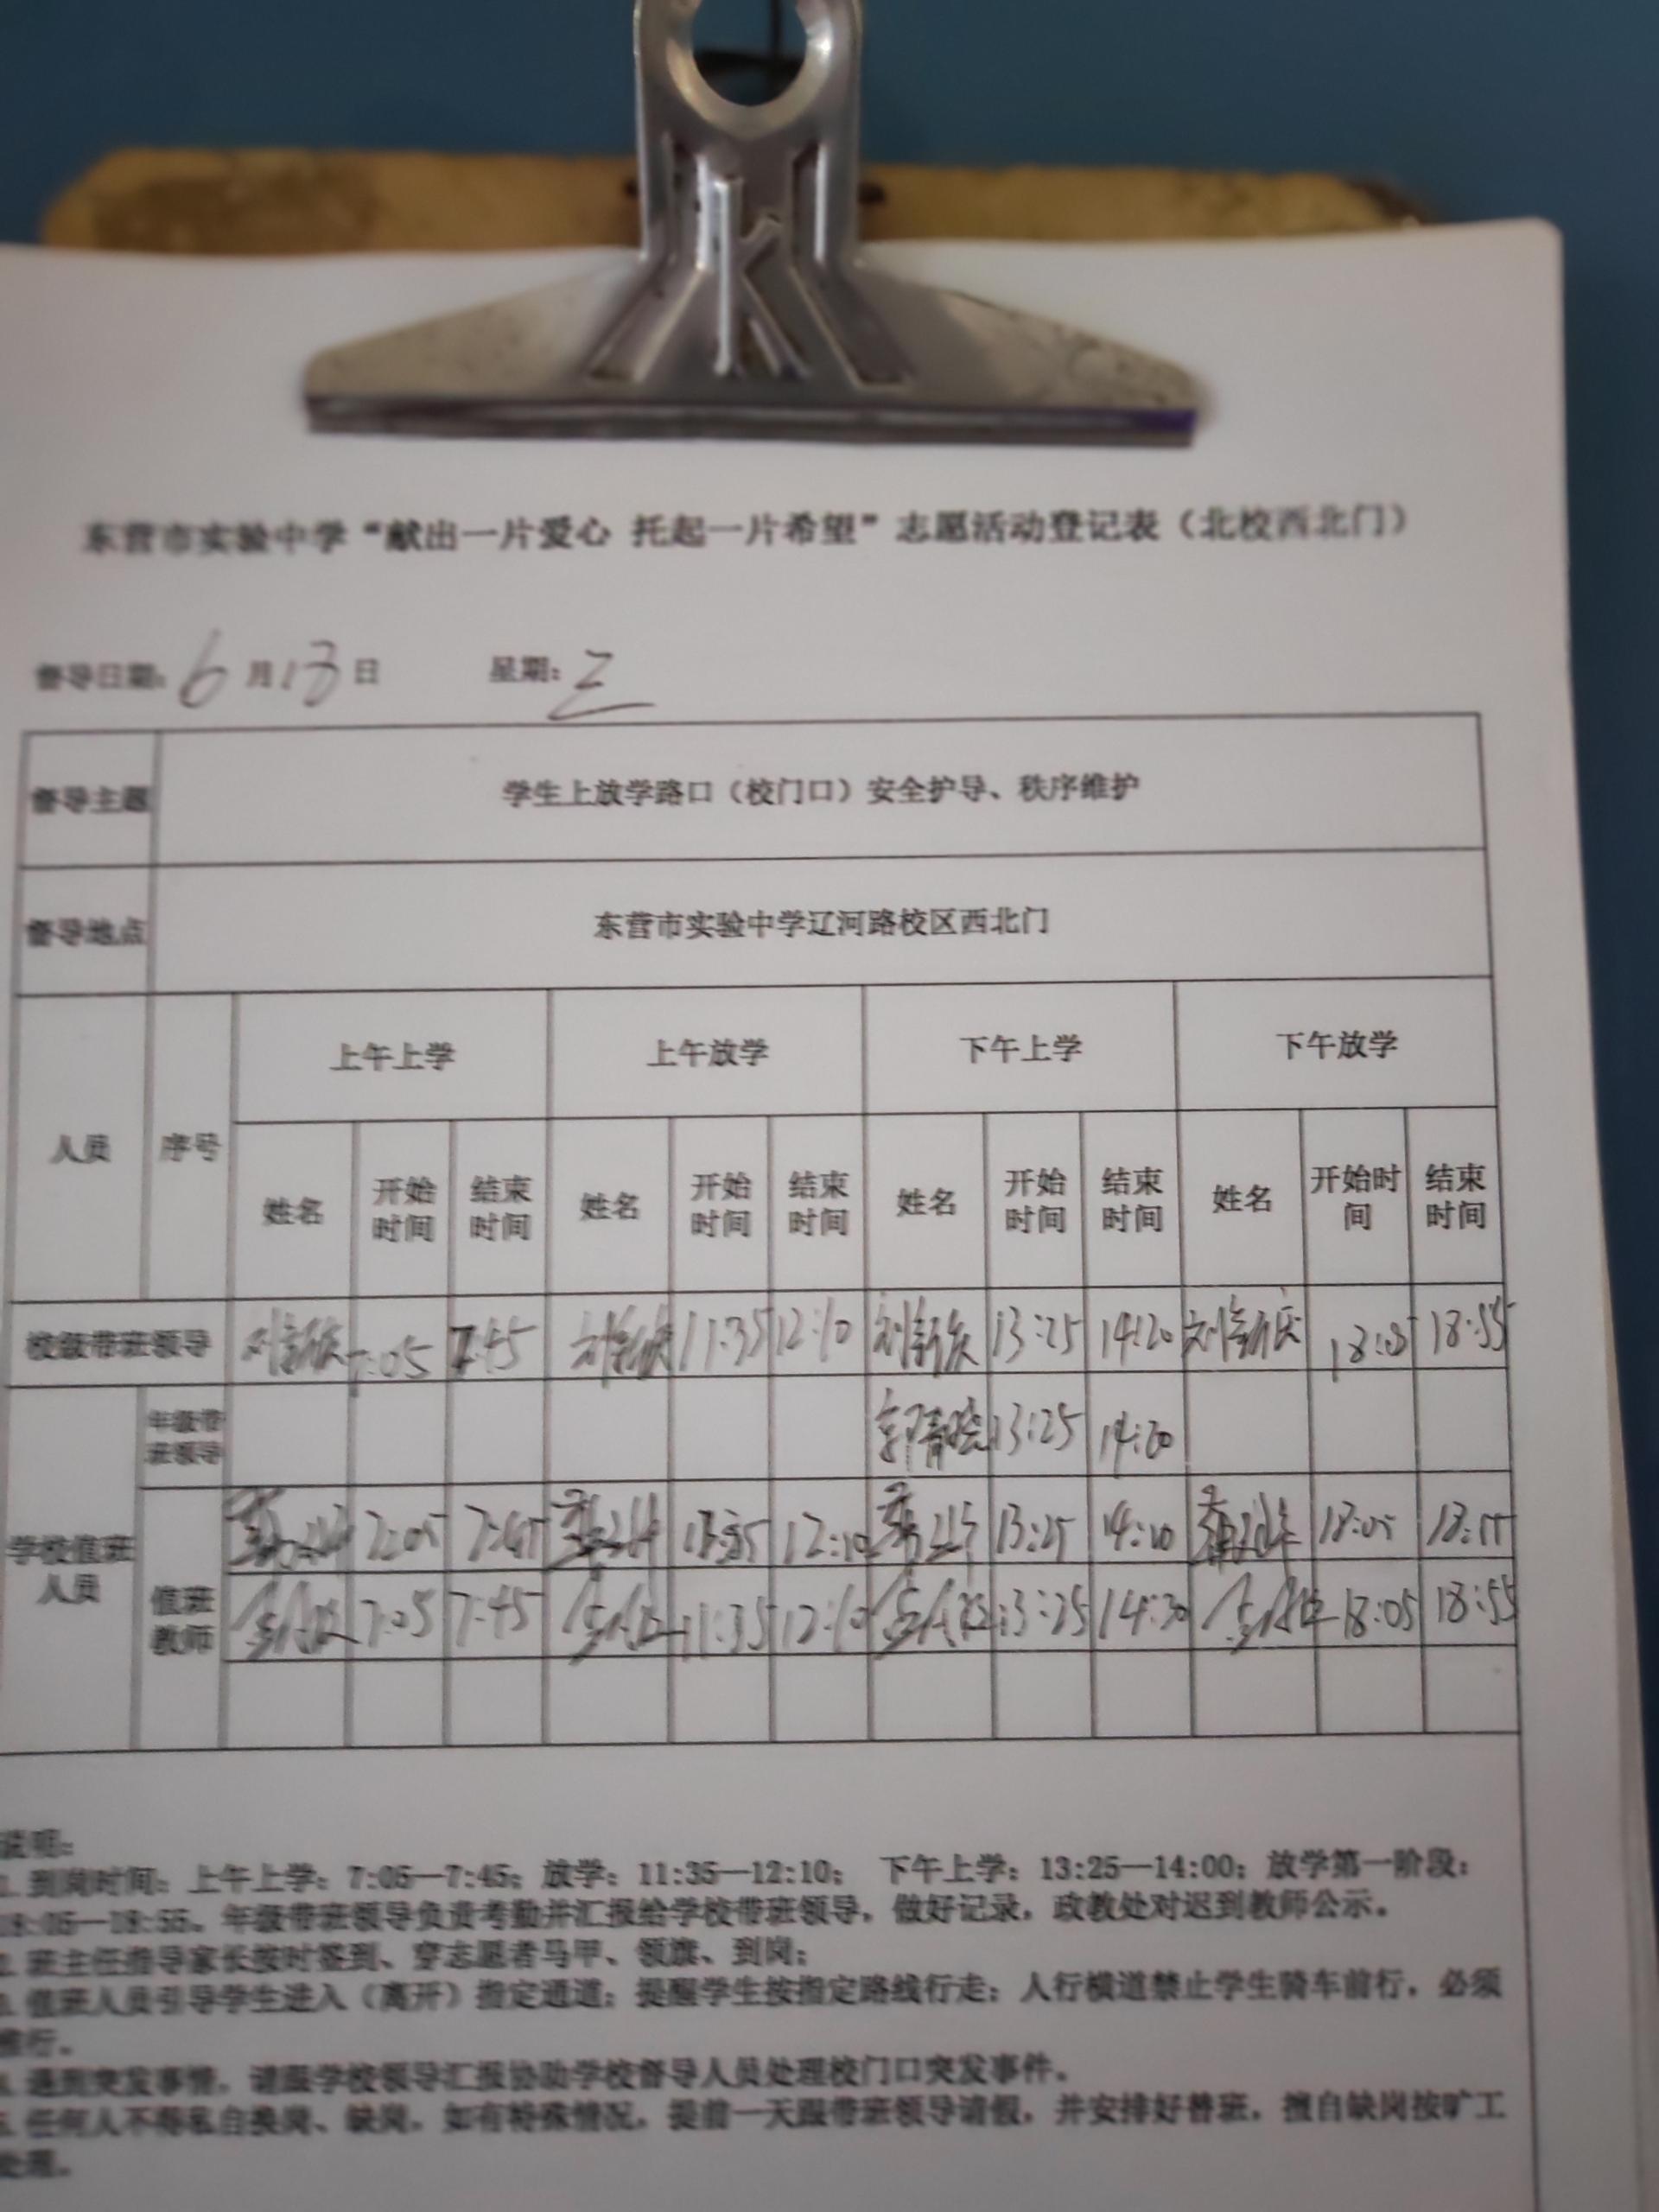 东营市实验中学“献出一片爱心 托起一片希望”志愿活动登记表（北校西北门）
督导日期：6月13日 星期：三
督导主题 学生上放学路口（校门口）安全护导、秩序维护
督导地点 东营市实验中学辽河路校区西北门
人员 序号 上午上学 上午放学 下午上学 下午放学
姓名 开始时间 结束时间 姓名 开始时间 结束时间 姓名 开始时间 结束时间 姓名 开始时间 结束时间
校级带班领导 7:05 7:45 11:35 12:10 13:25 14:20 18:05 18:55
学校值班人员
年级带班领导 郭青晓 13:25 14:20
值班教师 7:05 7:45 12:10 13:25 18:05
7:05 7:45 11:35 12:10 13:25 14:30 18:05 18:55
说明：
1. 到岗时间：上午上学：7:05—7:45；放学：11:35—12:10； 下午上学：13:25—14:00；放学第一阶段：
18:05—18:55。年级带班领导负责考勤并汇报给学校带班领导，做好记录，政教处对迟到教师公示。
2. 班主任指导家长按时签到、穿志愿者马甲、领旗、到岗；
3. 值班人员引导学生进入（离开）指定通道；提醒学生按指定路线行走；人行横道禁止学生骑车前行，必须
推行。
4. 遇到突发事情，请跟学校领导汇报协助学校督导人员处理校门口突发事件。
5. 任何人不得私自换岗、缺岗，如有特殊情况，提前一天跟带班领导请假，并安排好替班，擅自缺岗按旷工
处理。